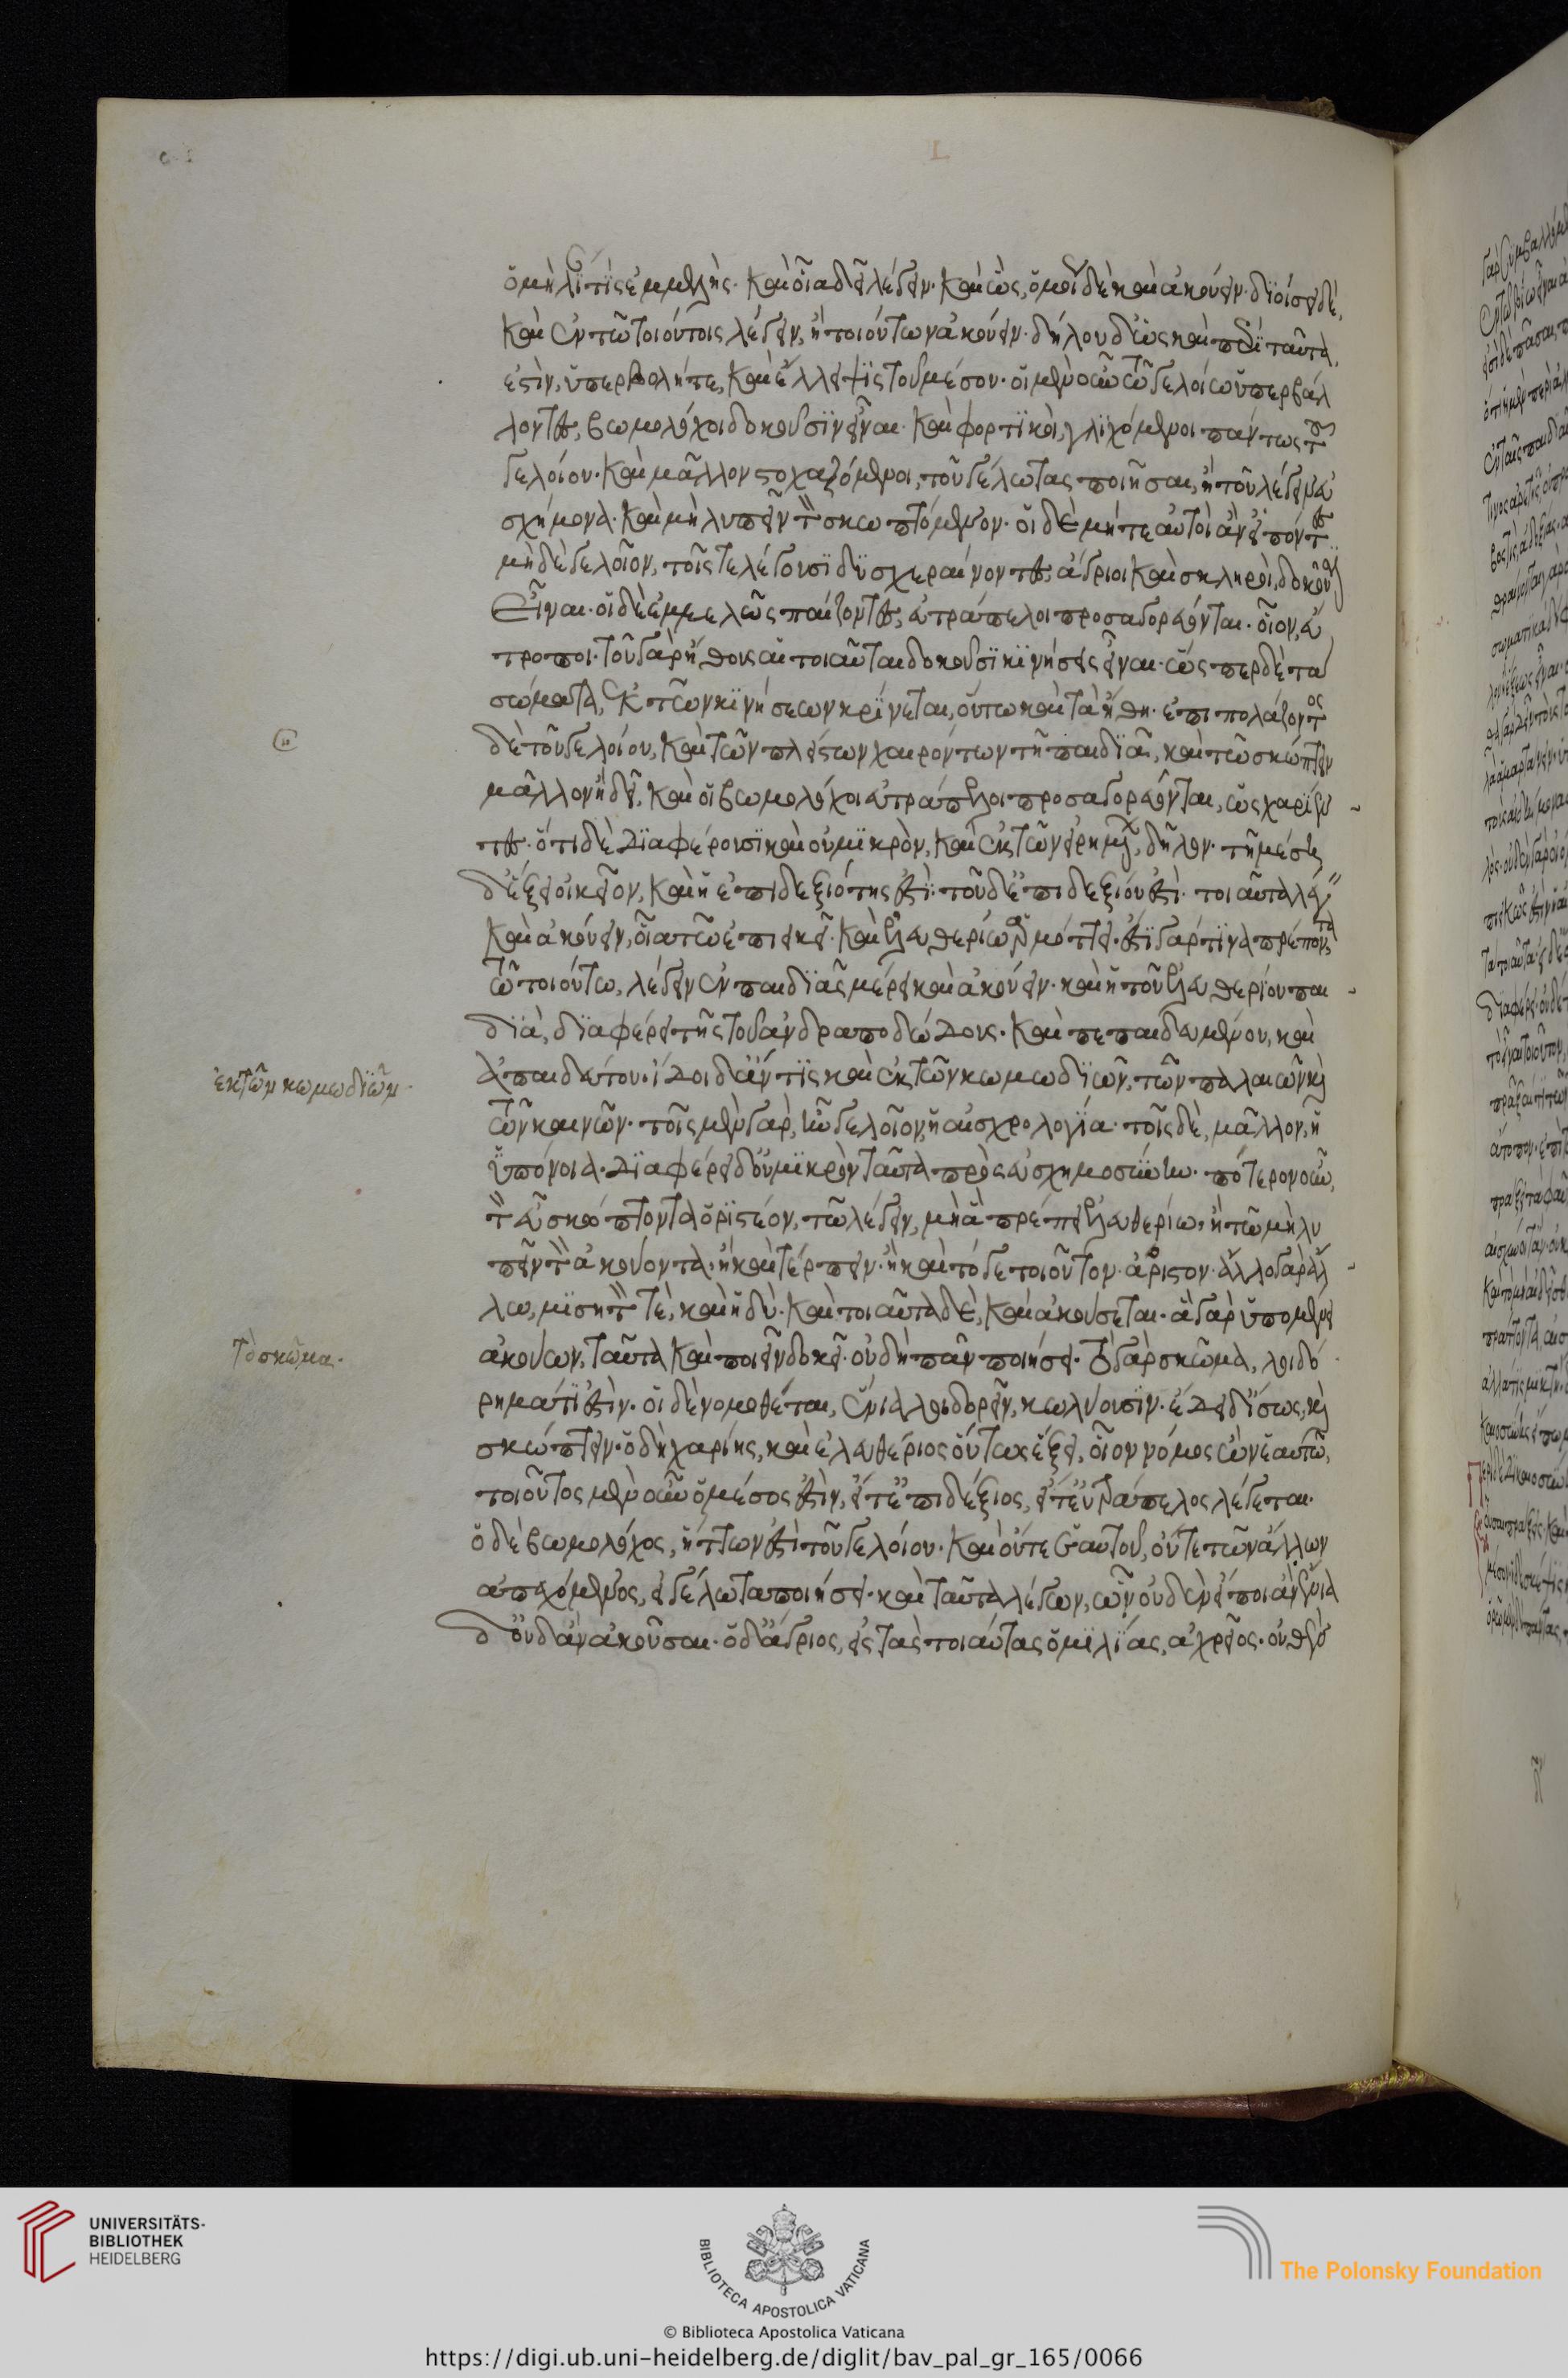 ὁμιλί τις ἐμμελής· καὶ οἷα δεῖ λέγειν· καὶ ὡς, ὁμοί δὲ καὶ ἀκούειν· διοίσει δὲ,
καὶ ἐν τῶ τοιούτοις λέγειν, ἢ τοιούτων ἀκούειν· δῆλον δ' ὡς καὶ περὶ ταῦτα
ἐστὶν, ὑπερβολή τε, καὶ ἔλλειψις τοῦ μέσου· οἱ μὲν οὖν τῶ γελοίω ὑπερβάλ
λοντες, βωμολόχοι δοκοῦσιν εἶναι· καὶ φορτικοὶ, γλιχόμενοι πάντως τοῦ
γελοίου· καὶ μᾶλλον στοχαζόμενοι, τοῦ γέλωτας ποιῆσαι, ἢ τοῦ λέγειν εὐ
σχήμονα· καὶ μὴ λυπεῖν τὸν σκωπτόμενον· οἱ δὲ μήτε αὐτοὶ ἂν εἰπόντες
μηδὲ γελοῖον, τοῖς τε λέγουσι δυσχεραίνοντες, ἄγριοι καὶ σκληροὶ, δοκοῦσιν
εἶναι· οἱ δὲ ἐμμελῶς παίζοντες, εὐτράπελοι προσαγορεύονται· οἷον, εὔ
τροποι· τοῦ γὰρ ἤθους αἱ τοιαῦται δοκοῦσι κινήσεις εἶναι· ὥσπερ δὲ τὰ
σώματα, ἐκ τῶν κινήσεων κρίνεται, οὕτω καὶ τὰ ἤθη· ἐπιπολάζοντος
δὲ τοῦ γελοίου, καὶ τῶν πλείστων χαιρόντων τῆ παιδιᾶ, καὶ τῶ σκώπτειν
μᾶλλον ἢ δεῖ, καὶ οἱ βωμολόχοι εὐτράπελοι προσαγορεύονται, ὡς χαρίεν
τες· ὅτι δὲ διαφέρουσι καὶ οὐ μικρὸν, καὶ ἐκ τῶν εἰρημένων, δῆλον· τῆ μέση
δ' ἕξει οἰκεῖον, καὶ ἡ ἐπιδεξιότης ἐστὶ· τοῦ δ' ἐπιδεξίου ἐστὶ· τοιαῦτα λέγειν
καὶ ἀκούειν, οἷα τῶ ἐπιεικεῖ· καὶ ἐλευθερίω ἁρμόττει· ἔστι γάρ τινα πρέποντα
τῶ τοιούτω, λέγειν ἐν παιδιᾶς μέρει καὶ ἀκούειν· καὶ ἡ τοῦ ἐλευθερίου παι
διὰ, διαφέρει τῆς τοῦ ἀνδραποδώδους· καὶ πεπαιδευμένου, καὶ
ἀπαιδεύτου· ἴδοι δ' ἄν τις καὶ ἐκ τῶν κωμωδιῶν, τῶν παλαιῶν καὶ
τῶν καινῶν· τοῖς μὲν γὰρ, ἦν γελοῖον, ἡ αἰσχρολογία· τοῖς δὲ, μᾶλλον, ἡ
ὑπόνοια· διαφέρει δ' οὐ μικρὸν ταῦτα πρὸς εὐσχημοσύνην· πότερον οὖν,
τὸν εὖ σκώπτοντα ὁριστέον, τῶ λέγειν, μὴ ἃ πρέπει ἐλευθερίω· ἢ τῶ μὴ λυ
πεῖν τὸν ἀκούοντα· ἢ καὶ τέρπειν· ἢ καὶ τό γε τοιοῦτον· ἀόριστον· ἄλλο γὰρ ἄλ
λω, μισητόν τε, καὶ ἡδύ· καὶ τοιαῦτα δὲ, καὶ ἀκούσεται· ἃ γὰρ ὑπομένει
ἀκούων, ταῦτα καὶ ποιεῖν δοκεῖ· οὐ δὴ πᾶν ποιήσει· τὸ γὰρ σκῶμμα, λοιδό
ρημά τί ἐστιν· οἱ δὲ νομοθέται, ἔνια λοιδορεῖν, κωλύουσιν· ἔδει δ' ἴσως, καὶ
σκώπτειν· ὁ δὴ χαρίης, καὶ ἐλευθέριος οὕτως ἕξει, οἷον νόμος ὢν ἑαυτῶ,
τοιοῦτος μὲν οὖν ὁ μέσος ἐστὶν, εἴτ' ἐπιδέξιος, εἴτ' εὐτράπελος λέγεται·
ὁ δὲ βωμολόχος, ἥττων ἐστὶ τοῦ γελοίου· καὶ οὔτε ἑαυτοῦ, οὔτε τῶν ἄλλων
ἀπεχόμενος, εἰ γέλωτα ποιήσει· καὶ ταῦτα λέγων, ὧν οὐδὲν εἴποι ἂν· ἔνια
δ' οὐδ' ἂν ἀκοῦσαι· ὁ δ' ἄγριος, εἰς τὰς τοιαύτας ὁμιλίας, ἀχρεῖος· οὐθὲν
ἐκ τῶν κωμωδιῶν·
τὸ σκῶμμα·
UNIVERSITÄTS-
BIBLIOTHEK
HEIDELBERG
BIBLIOTECA APOSTOLICA VATICANA
The Polonsky Foundation
© Biblioteca Apostolica Vaticana
https://digi.ub.uni-heidelberg.de/diglit/bav_pal_gr_165/0066